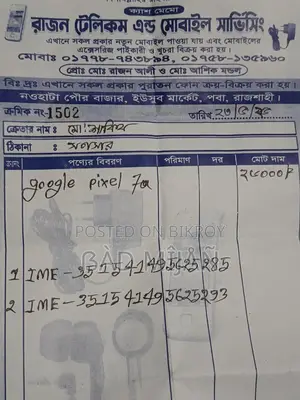 ক্যাশ মেমো
রাজন টেলিকম এন্ড মোবাইল সার্ভিসিং
এখানে সকল প্রকার নতুন মোবাইল পাওয়া যায় এবং মোবাইলের
এক্সেসরিজ পাইকারী ও খুচরা বিক্রয় করা হয়।
প্রোঃ মোঃ রাজন আলী ও মোঃ আশিক মন্ডল
বিঃ দ্রঃ এখানে সকল প্রকার পুরাতন ফোন ক্রয়-বিক্রয় করা হয়।
নওহাটা পৌর বাজার, ইউসুব মার্কেট, পবা, রাজশাহী।
ক্রমিক নং 1502 তারিখ
ক্রেতার নাম : মো:
ঠিকানা :
পণ্যের বিবরণ পরিমাণ দর মোট দাম
google pixel 7a
POSTED ON BIKROY
1 IME-351541495625285
2 IME-351541495625293